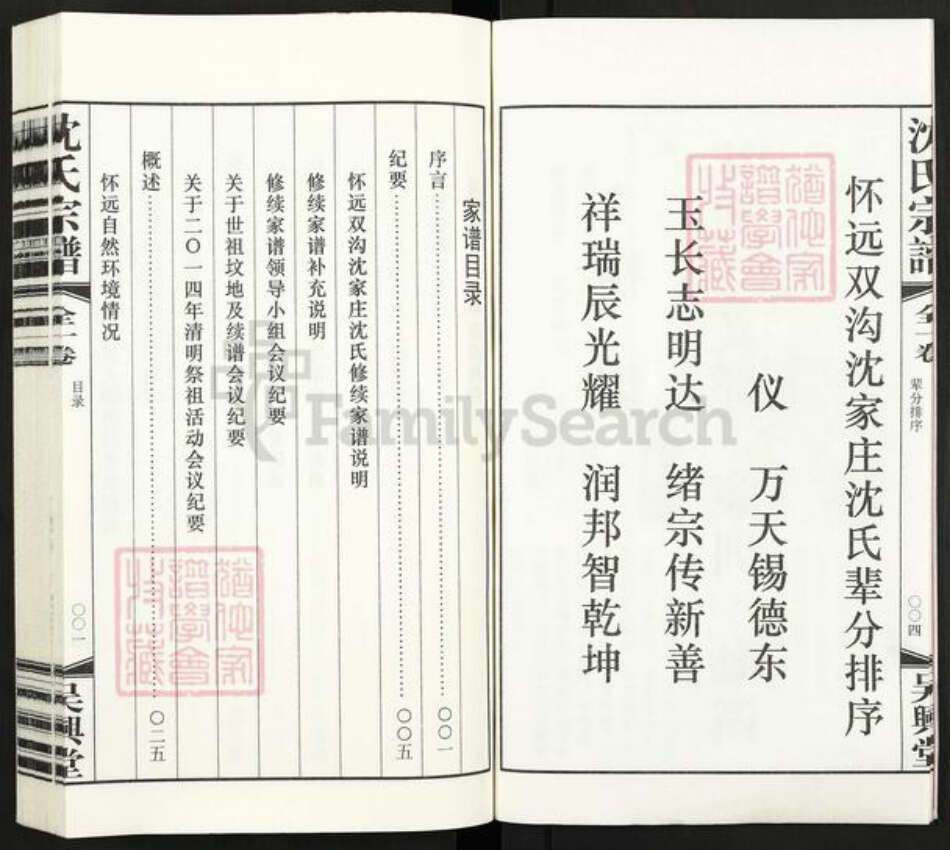 沈氏宗譜 全一卷 辈分排序 〇〇四 吴興堂
怀远双沟沈家庄沈氏辈分排序
仪 万天锡德东
玉长志明达 绪宗传新善
祥瑞辰光耀 润邦智乾坤
家谱目录
序言 〇〇一
纪要 〇〇五
怀远双沟沈家庄沈氏修续家谱说明
修续家谱补充说明
修续家谱领导小组会议纪要
关于世祖坟地及续谱会议纪要
关于二〇一四年清明祭祖活动会议纪要
概述 〇二五
怀远自然环境情况
沈氏宗譜 全一卷 目录 〇〇一 吴興堂
FamilySearch